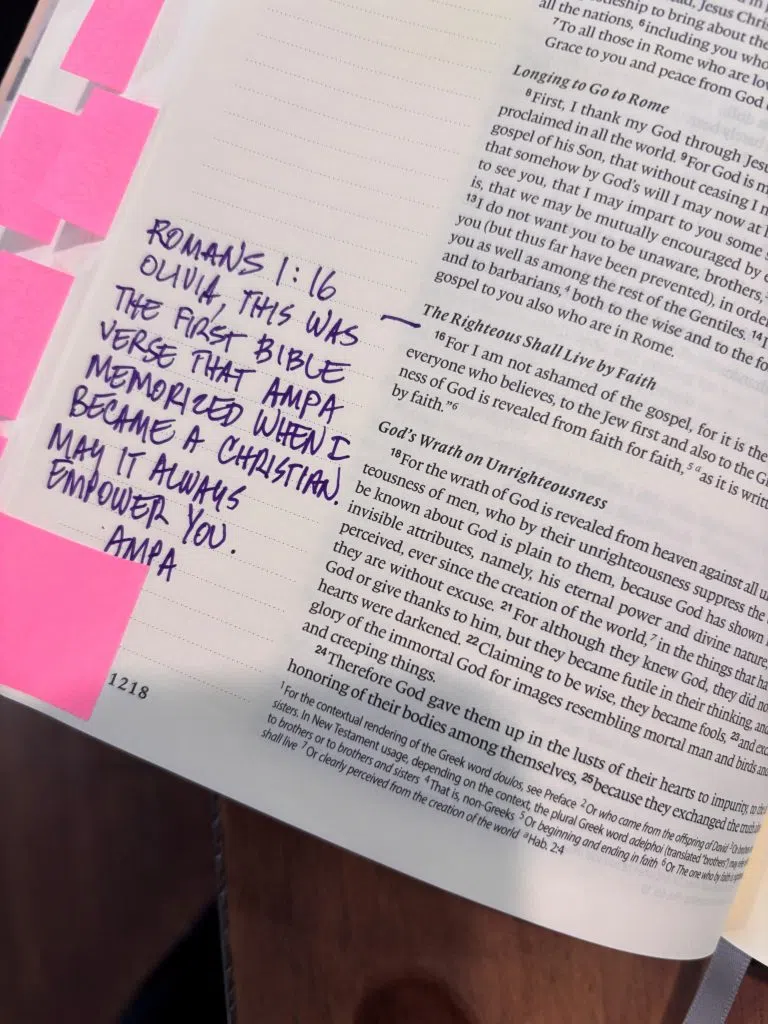 ROMANS 1:16
OLIVIA, THIS WAS
THE FIRST BIBLE
VERSE THAT AMPA
MEMORIZED WHEN I
BECAME A CHRISTIAN.
MAY IT ALWAYS
EMPOWER YOU.
AMPA
1218
Jesus Chris
to bring about the
all the nations, 6including you who
7To all those in Rome who are lov
Grace to you and peace from God
Longing to Go to Rome
8First, I thank my God through Jesu
proclaimed in all the world. 9For God is m
gospel of his Son, that without ceasing I m
that somehow by God's will I may now at l
to see you, that I may impart to you some s
is, that we may be mutually encouraged by e
13I do not want you to be unaware, brothers,
you (but thus far have been prevented), in orde
you as well as among the rest of the Gentiles. 14I
and to barbarians,4 both to the wise and to the fo
gospel to you also who are in Rome.
The Righteous Shall Live by Faith
16For I am not ashamed of the gospel, for it is the
everyone who believes, to the Jew first and also to the G
ness of God is revealed from faith for faith,5 a as it is writt
by faith."6
God's Wrath on Unrighteousness
18For the wrath of God is revealed from heaven against all u
teousness of men, who by their unrighteousness suppress the
be known about God is plain to them, because God has shown
invisible attributes, namely, his eternal power and divine nature,
perceived, ever since the creation of the world,7 in the things that ha
they are without excuse. 21For although they knew God, they did no
God or give thanks to him, but they became futile in their thinking, and
hearts were darkened. 22Claiming to be wise, they became fools, 23and exc
glory of the immortal God for images resembling mortal man and birds and
and creeping things.
24Therefore God gave them up in the lusts of their hearts to impurity, to the
honoring of their bodies among themselves, 25because they exchanged the truth
1For the contextual rendering of the Greek word doulos, see Preface 2Or who came from the offspring of David 3Or brothers
sisters. In New Testament usage, depending on the context, the plural Greek word adelphoi (translated "brothers") may
to brothers or to brothers and sisters 4That is, non-Greeks 5Or beginning and ending in faith 6Or The one who by faith is
shall live 7Or clearly perceived from the creation of the world a Hab. 2:4